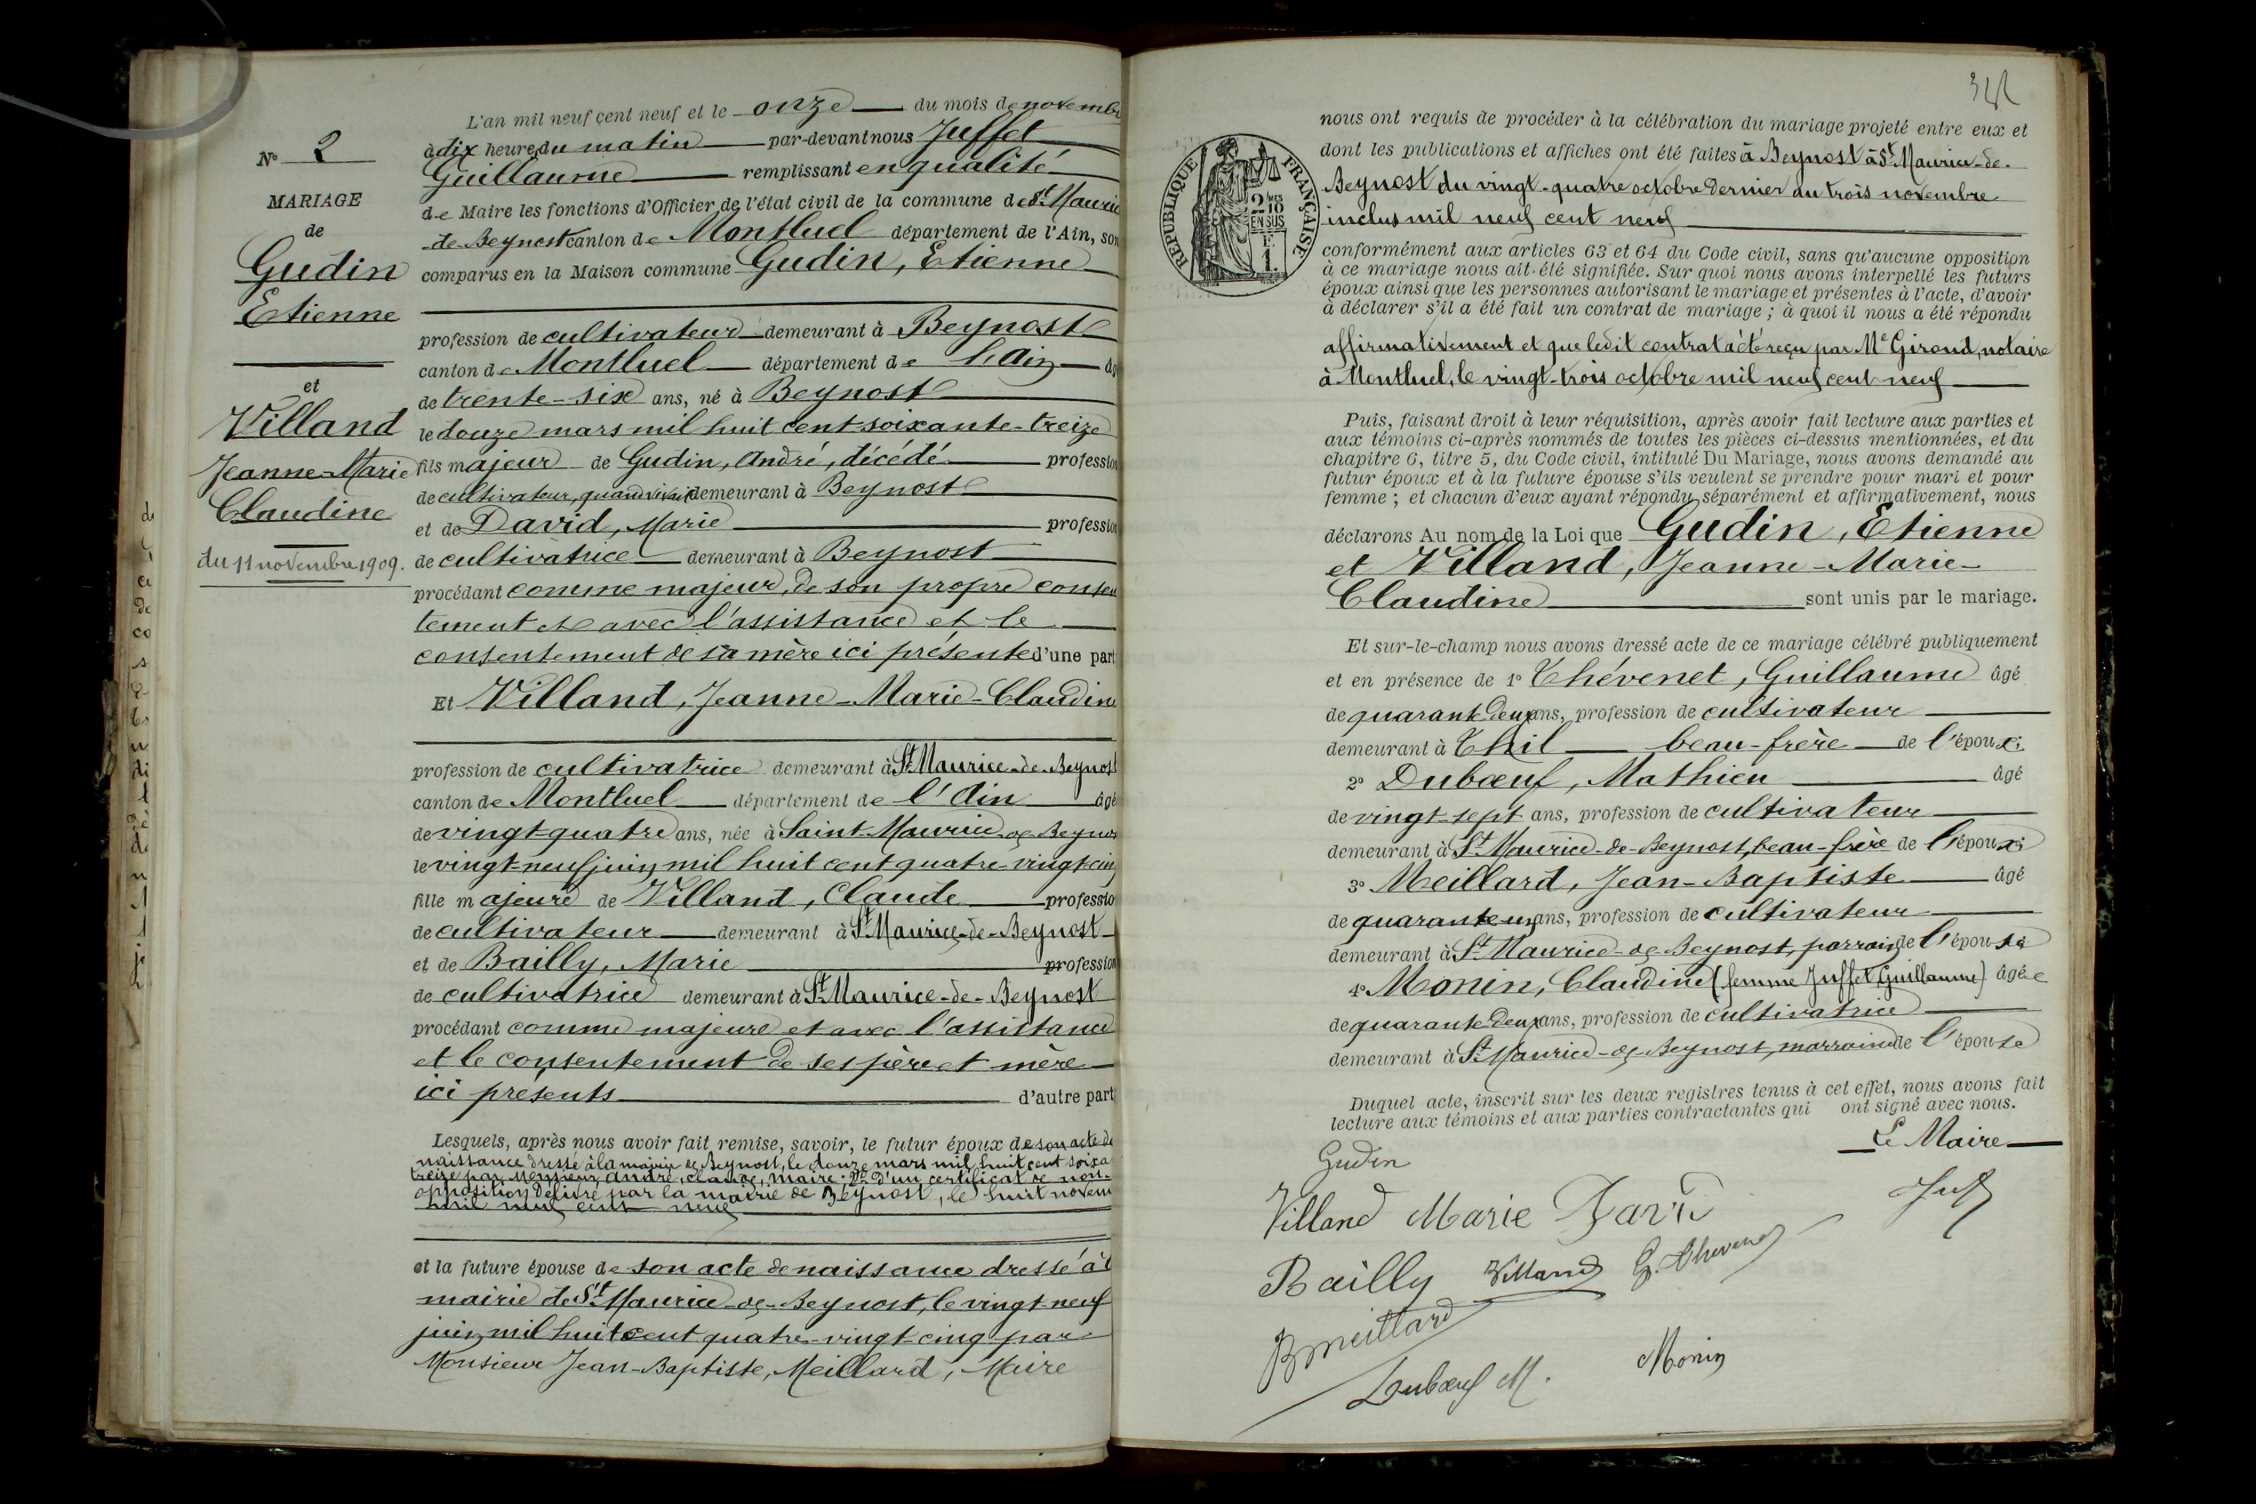 N° 2
MARIAGE
de
Gudin
Etienne
et
Villand
Jeanne-Marie
Claudine
du 11 novembre 1909.
L'an mil neuf cent neuf et le onze du mois de novembr
à dix heures du matin par-devant nous Juffet
Guillaume remplissant en qualité
de Maire les fonctions d'Officier de l'état civil de la commune de St Mauric
de Beynost canton de Montluel département de l'Ain, son
comparus en la Maison commune Gudin, Etienne
profession de cultivateur demeurant à Beynost
canton de Montluel département de l'Ain âg
de trente-six ans, né à Beynost
le douze mars mil huit cent soixante-treize
fils majeur de Gudin, André, décédé profession
de cultivateur, quand vivait demeurant à Beynost
et de David, Marie profession
de cultivatrice demeurant à Beynost
procédant comme majeur, de son propre consen
tement et avec l'assistance et le
consentement de sa mère ici présente d'une part
Et Villand, Jeanne-Marie-Claudine
profession de cultivatrice demeurant à St Maurice-de-Beynost
canton de Montluel département de l'Ain âgé
de vingt-quatre ans, née à Saint-Maurice-de-Beynos
le vingt-neuf juin mil huit cent quatre-vingt-cinq
fille majeure de Villand, Claude professio
de cultivateur demeurant à St Maurice-de-Beynost
et de Bailly, Marie profession
de cultivatrice demeurant à St Maurice-de-Beynost
procédant comme majeure et avec l'assistance
et le consentement de ses père et mère
ici présents d'autre part
Lesquels, après nous avoir fait remise, savoir, le futur époux de son acte de
naissance dressé à la mairie de Beynost, le douze mars mil huit cent soixa
treize par Monsieur André, Claude, maire; 2° d'un certificat de non-
opposition délivré par la mairie de Beynost, le huit novem
mil neuf cent neuf
et la future épouse de son acte de naissance dressé à l
mairie de St Maurice-de-Beynost, le vingt-neuf
juin mil huit cent quatre-vingt-cinq par
Monsieur Jean-Baptiste, Meillard, Maire
RÉPUBLIQUE FRANÇAISE
2 MES
10
EN SUS
F.
1.
nous ont requis de procéder à la célébration du mariage projeté entre eux et
dont les publications et affiches ont été faites à Beynost à St Maurice-de-
Beynost du vingt-quatre octobre dernier au trois novembre
inclus mil neuf cent neuf
conformément aux articles 63 et 64 du Code civil, sans qu'aucune opposition
à ce mariage nous ait été signifiée. Sur quoi nous avons interpellé les futurs
époux ainsi que les personnes autorisant le mariage et présentes à l'acte, d'avoir
à déclarer s'il a été fait un contrat de mariage ; à quoi il nous a été répondu
affirmativement et que ledit contrat a été reçu par Me Giroud, notaire
à Montluel, le vingt-trois octobre mil neuf cent neuf
Puis, faisant droit à leur réquisition, après avoir fait lecture aux parties et
aux témoins ci-après nommés de toutes les pièces ci-dessus mentionnées, et du
chapitre 6, titre 5, du Code civil, intitulé Du Mariage, nous avons demandé au
futur époux et à la future épouse s'ils veulent se prendre pour mari et pour
femme ; et chacun d'eux ayant répondu séparément et affirmativement, nous
déclarons Au nom de la Loi que Gudin, Etienne
et Villand, Jeanne-Marie-
Claudine sont unis par le mariage.
Et sur-le-champ nous avons dressé acte de ce mariage célébré publiquement
et en présence de 1° Thévenet, Guillaume âgé
de quarante-deux ans, profession de cultivateur
demeurant à Thil beau-frère de l'époux;
2° Dubœuf, Mathieu âgé
de vingt-sept ans, profession de cultivateur
demeurant à St Maurice-de-Beynost, beau-frère de l'époux;
3° Meillard, Jean-Baptiste âgé
de quarante-un ans, profession de cultivateur
demeurant à St Maurice-de-Beynost, parrain de l'épouse
4° Monin, Claudine (femme Juffet Guillaume) âgée
de quarante-deux ans, profession de cultivatrice
demeurant à St Maurice-de-Beynost, marraine de l'épouse
Duquel acte, inscrit sur les deux registres tenus à cet effet, nous avons fait
lecture aux témoins et aux parties contractantes qui ont signé avec nous.
Le Maire
Gudin
Villand Marie David
Juffet
Bailly Villand G. Thevenet
B Meillard
Dubœuf M. Monin